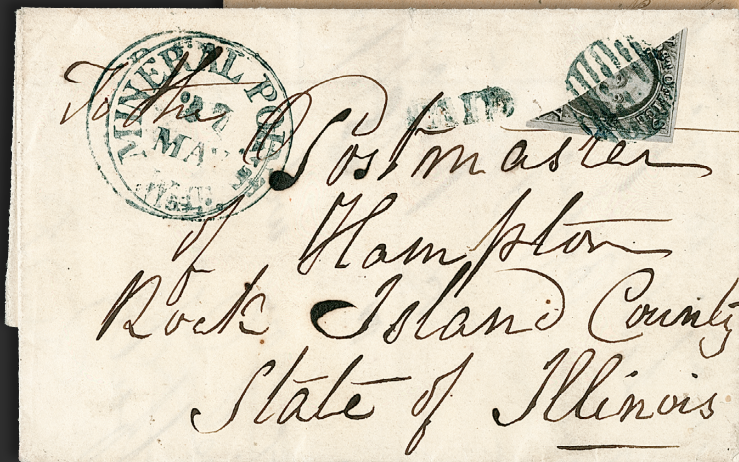 MINERAL POINT
27
MAY
W.T.
PAID
To the Postmaster
of Hampton
Rock Island County
State of Illinois